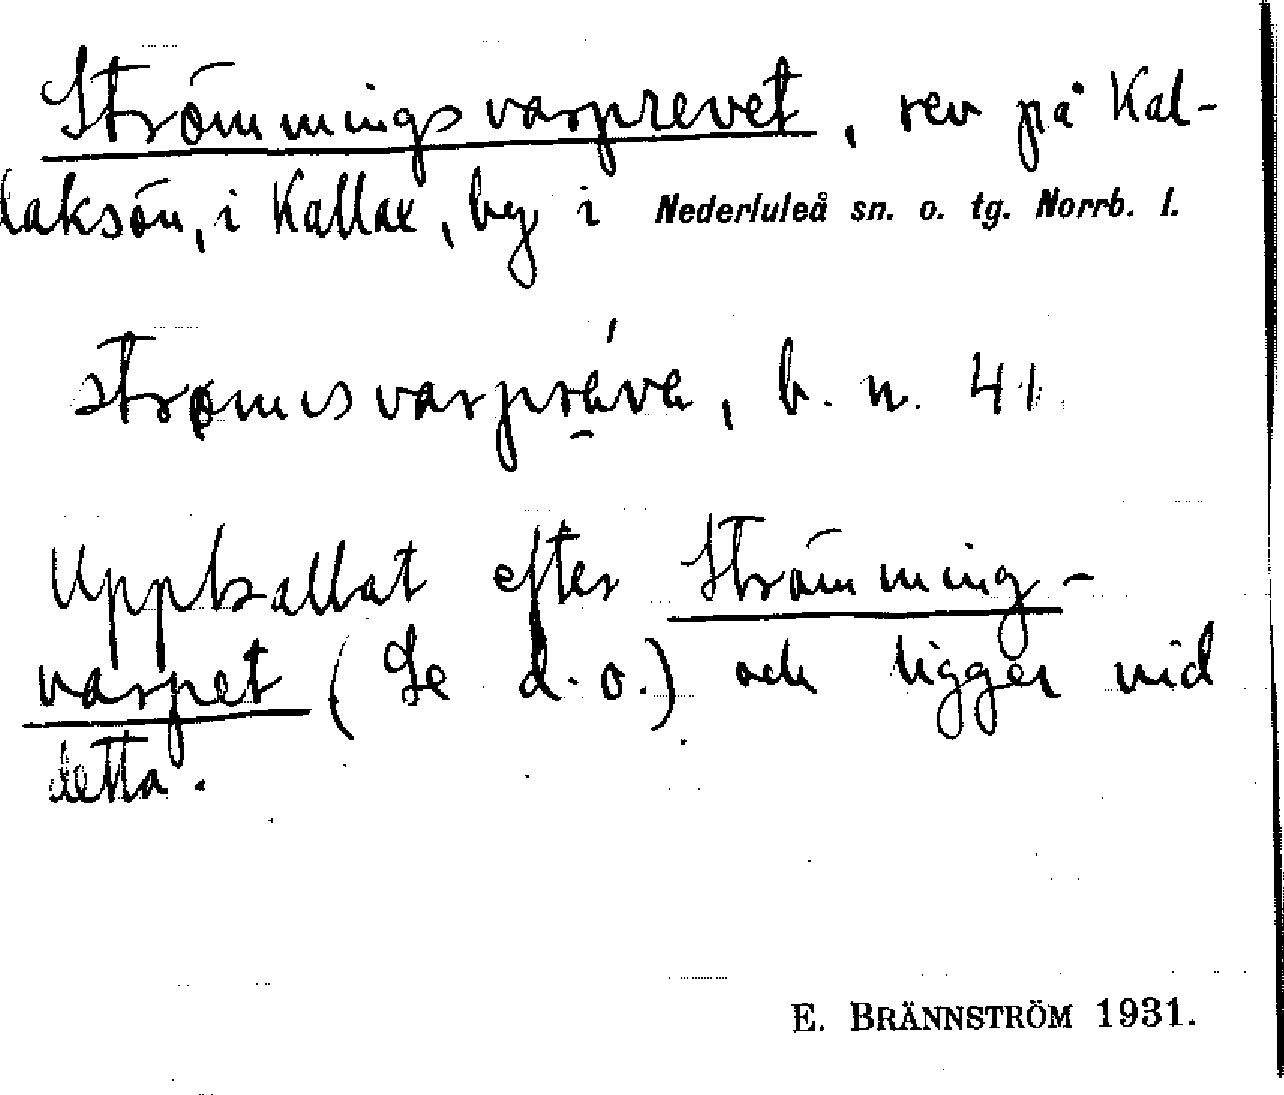 Strömmingsvarprevet, rev på Kal-
laksön, i Kallax, by i Nederluleå sn. o. tg. Norrb. l.
b. n. 41
Uppkallat efter Strömming-
varpet (Se d. o.) och ligger vid
detta.
E. BRÄNNSTRÖM 1931.